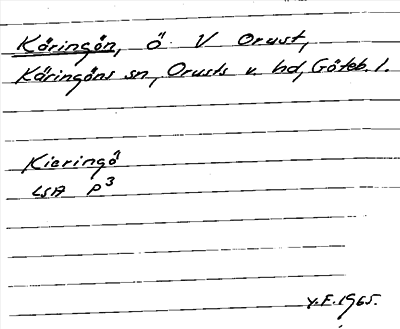 Käringön, ö V Orust,
Käringöns sn, Orusts v. hd, Göteb. l.
Kieringö
LSA P3
Y.E. 1965.